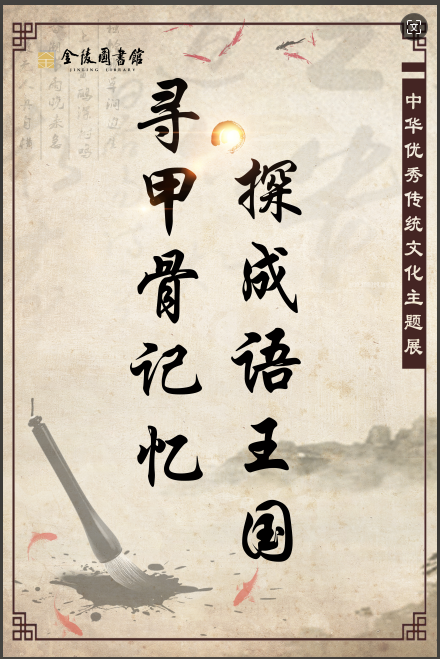 金陵圖書館
JINLING LIBRARY
中华优秀传统文化主题展
探成语王国
寻甲骨记忆